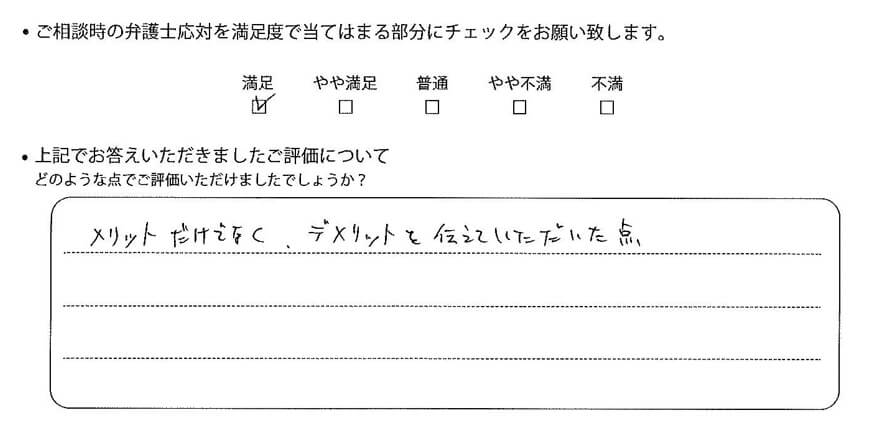 • ご相談時の弁護士応対を満足度で当てはまる部分にチェックをお願い致します。
満足 やや満足 普通 やや不満 不満
☑ □ □ □ □
• 上記でお答えいただきましたご評価について
どのような点でご評価いただけましたでしょうか？
メリットだけでなく、デメリットを伝えていただいた点